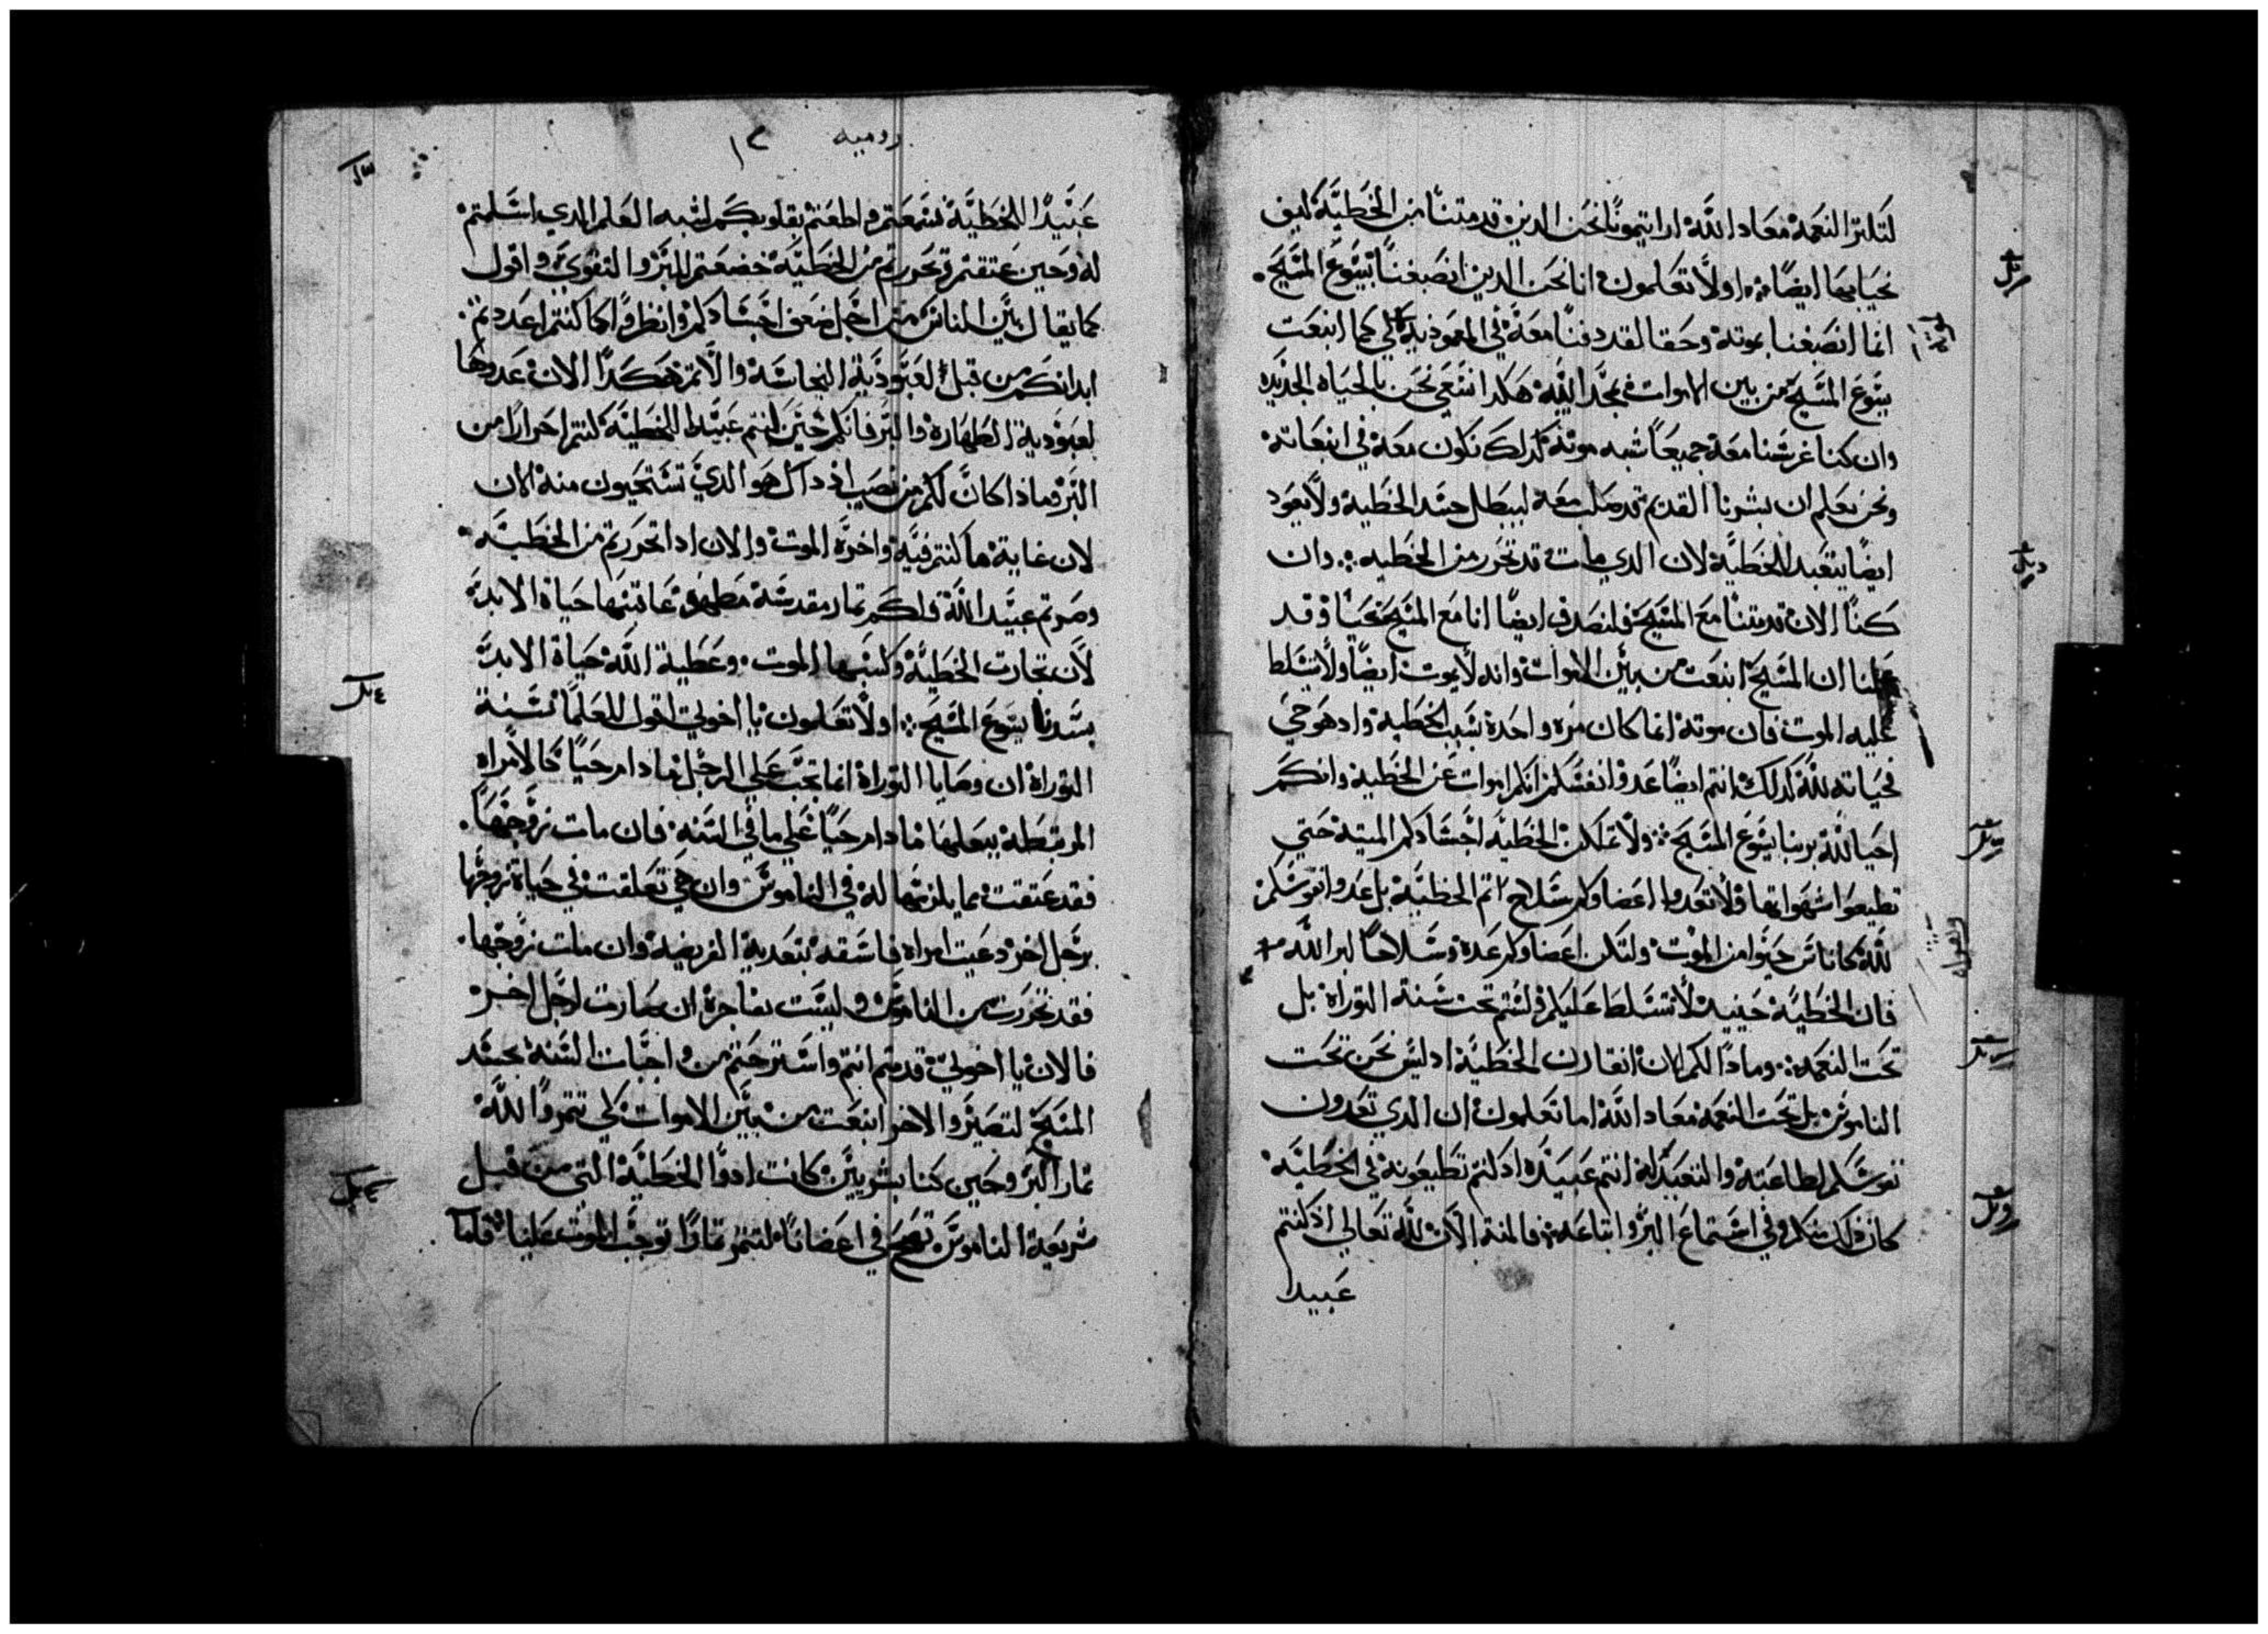 لتكتر النعمة معاد الله ارايتمونا نحن الدين قد متنا من الخطية كيف
نحيا بها ايضا اولا تعلمون انا نحن الدين انصبغنا بيسوع المسيح
انما انصبغنا بموتة وحقا لقد دفنا معة في المعموذية لكي كما انبعت
يسوع المسيح من بين الاموات بمجد الله هكدا نسعي نحن بالحياه الجديده
وان كنا غرسنا معة جميعا شبه موتة كدلك نكون معة في انبعاتة
ونحن نعلم ان بشرنا القديم قد صلب معة ليبطل جسد الخطية ولا يعود
ايضا يتعبد للخطية لان الدي مات قد تحرر من الخطيه وان
كنا الان قد متنا مع المسيح فلنصدق ايضا انا مع المسيح نحيا وقد
علمنا ان المسيح انبعت من بين الاموات وانه لا يموت ايضا ولا يتسلط
عليه الموت فان موتة انما كان مره واحدة بسبب الخطية واد هو حي
فحياته لله كدلك انتم ايضا عدوا انفسكم انكم اموات عن الخطية وانكم
احيا لله بربنا يسوع المسيح ولا تملكن الخطية اجسادكم الميتة حتي
تطيعوا شهواتها ولا تعدوا اعضاوكم سلاح اتم الخطية بل عدوا نفوسكم
لله كاناس حيوا من الموت ولتكن اعضاوكم عدة وسلاحا لبر الله
فان الخطية حينيد لا تتسلط عليكم ولستم تحت سنة التوراة بل
تحت النعمة وماذا لكم الان انقارن الخطية اد ليس نحن تحت
الناموس بل تحت النعمة معاد الله اما تعلمون ان الدي تعدون
نفوسكم لطاعتة والتعبد له انتم عبيده اد كنتم تطيعونة في الخطية
كان ذلك منكم وفي استماع البر واتباعة فالمنة الان لله تعالي اذ كنتم
عبيدا
رومية ١٢
عبيدا للخطية فسمعتم واطعتم بقلوبكم لشبه العلم الدي اسلمتم
له وحين عتقتم وتحررتم من الخطية خضعتم للبر والتقوي واقول
كما يقال بين الناس من اجل ضعف اجسادكم وانظروا كما كنتم اعددتم
ابدانكم من قبل لعبودية النجاسة والاتم هكدا الان عدوها
لعبودية الطهارة والبر فانكم حين كنتم عبيدا للخطية كنتم احرارا من
البر فماذا كان لكم من نصيب اذ داك هو الدي تستحيون منة الان
لان غاية ما كنتم فية واخرة الموت والان ادا تحررتم من الخطية
وصرتم عبيد الله ولكم تمار مقدسة مطهرة عاقبتها حياة الابد
لان تجارت الخطية وكسبها الموت وعطية الله حياة الابد
بسيدنا يسوع المسيح اولا تعلمون يا اخوتي اقول للعلما بسنة
التوراة ان وصايا التوراة انما تجب علي الرجل ما دام حيا كالامراه
المرتبطة ببعلها ما دام حيا علي ما في السنة فان مات زوجها
فقد عتقت مما يلزمها له في الناموس وان هي تعلقت في حياة زوجها
برجل اخر دعيت امراه فاسقه بتعدية الفريضة وان مات زوجها
فقد تحررت من الناموس وليست بفاجرة ان صارت لرجل اخر
فالان يا اخوتي قد متم انتم واسترحتم من واجبات السنة بجسد
المسيح لتصيروا لاخر انبعت من بين الاموات لكي تتمروا لله
تمار البر وحين كنا بشريين كانت ادوا الخطية التي من قبل
شريعة الناموس تهيج في اعضانا لنتمر تمارا توجب الموت علينا فاما